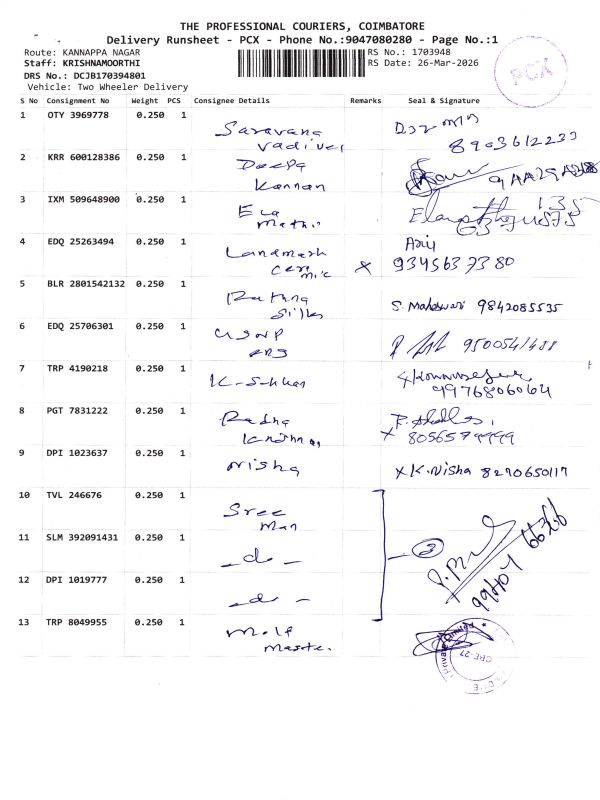 THE PROFESSIONAL COURIERS, COIMBATORE
Delivery Runsheet - PCX - Phone No.:9047080280 - Page No.:1
Route: KANNAPPA NAGAR
RS No.: 1703948
Staff: KRISHNAMOORTHI
RS Date: 26-Mar-2026
PCX
DRS No.: DCJB170394801
Vehicle: Two Wheeler Delivery
S No Consignment No Weight PCS Consignee Details Remarks Seal & Signature
1 OTY 3969778 0.250 1 Saravana
Vadivel 8903612233
2 KRR 600128386 0.250 1 Deepa
Kannan
3 IXM 509648900 0.250 1
4 EDQ 25263494 0.250 1 Landmark
x 9345637380
5 BLR 2801542132 0.250 1 Rathna
Silks S. Maheswari 9842085535
6 EDQ 25706301 0.250 1 9500541488
7 TRP 4190218 0.250 1
9976806064
8 PGT 7831222 0.250 1 Radha
Krishna x 8056579999
9 DPI 1023637 0.250 1 Nisha x K. Nisha 8270650117
10 TVL 246676 0.250 1 Sree
Man
11 SLM 392091431 0.250 1 - do - 3
12 DPI 1019777 0.250 1 - do -
13 TRP 8049955 0.250 1
Private Limited
CBE-27